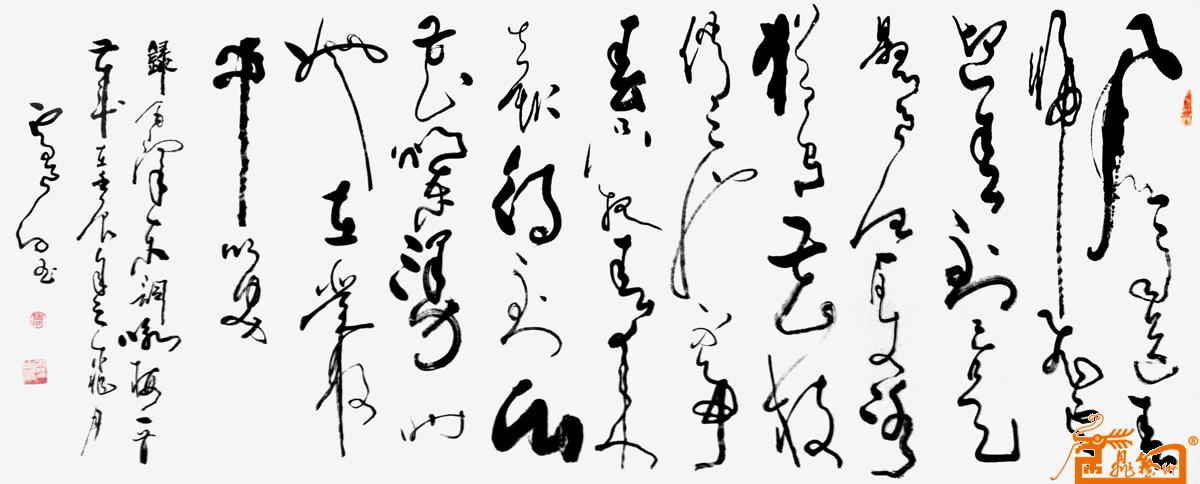 风雨送春
归飞雪
迎春到已是
悬崖百丈冰
犹有花枝
俏俏也不争
春只把春来
报待到山
花烂漫时
她在丛
中笑
錄毛泽东词咏梅一首
在壬辰年之月